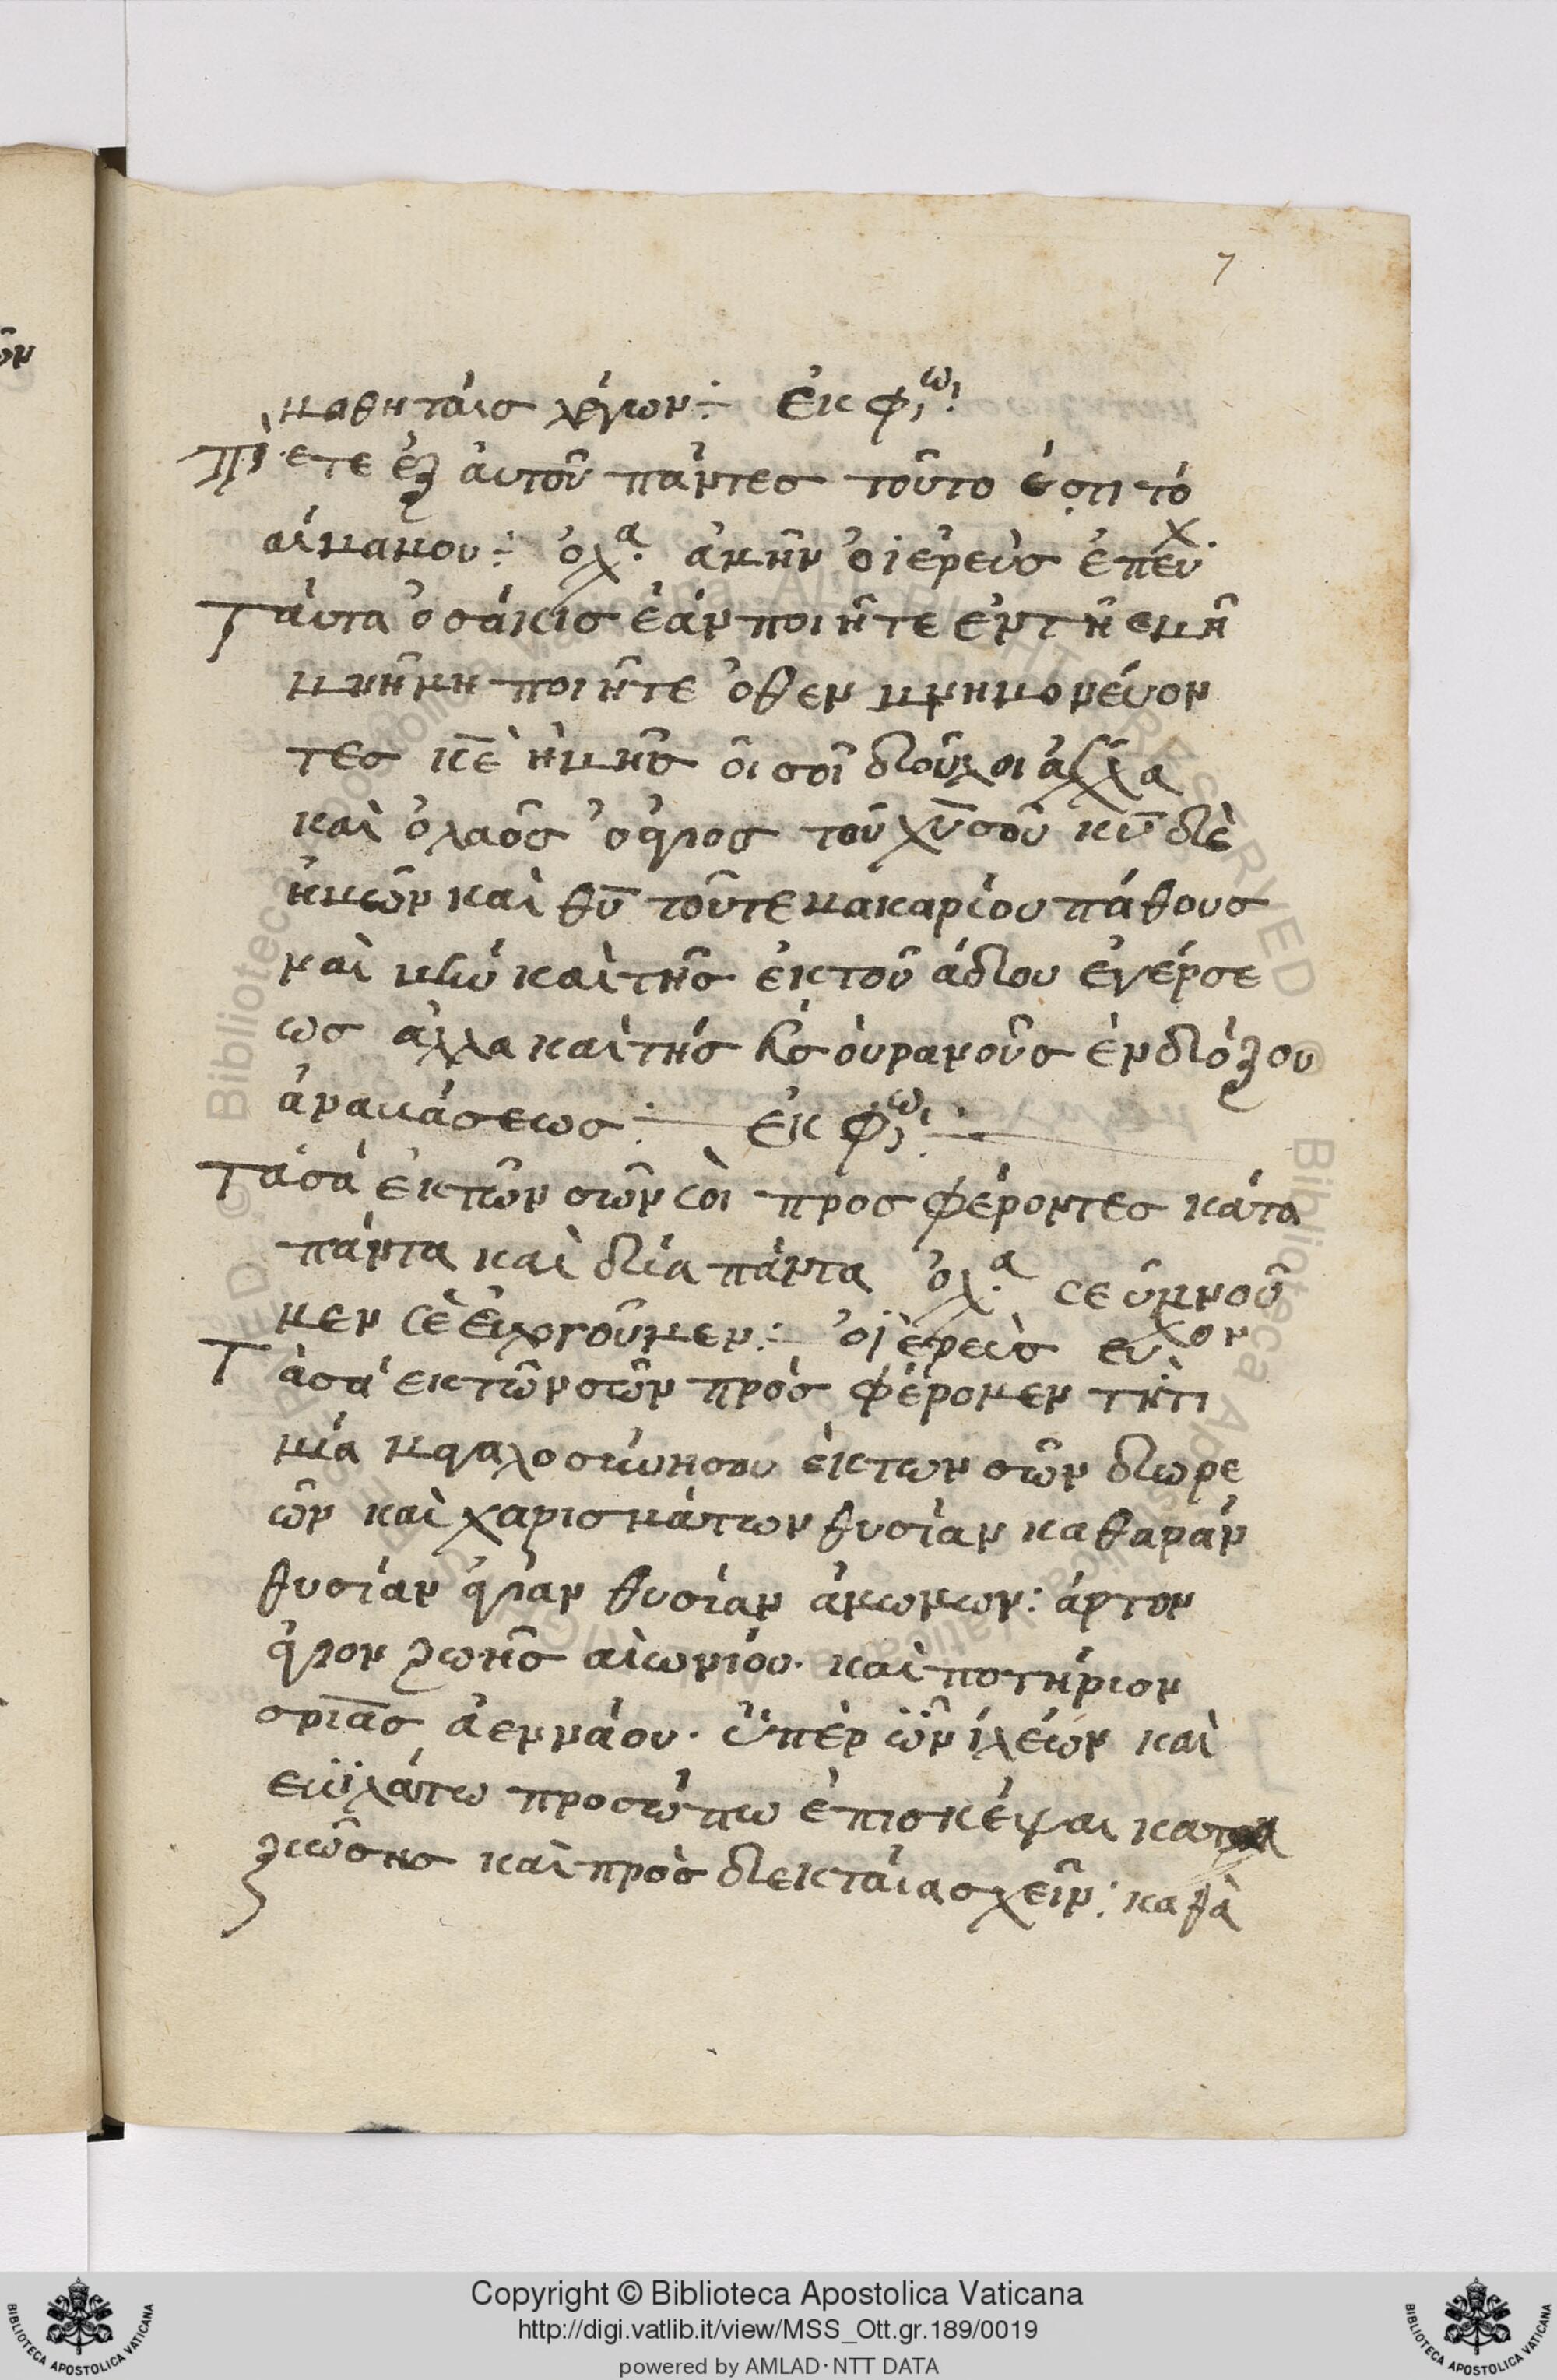 7
μαθητάις λέγων÷ ἐκ φώ
Πίετε ἐξ ἀυτοῦ πάντες τοῦτο ἐστι τό
αἷμαμου÷ ὁλα. ἀμὴν ὁ ἱερεὺς ἐπευχ.
Τάυτα ὁσάκις ἐάν ποιῆτε ἐν τῆ εμῆ
μνήμη ποιῆτε ὅθεν μνημονέυον
τες κ̅ε̅ ἡμῆς ὁι σοῖ δοῦλοι ἀλλα
καὶ ὁ λαὸς ὁ ἅγιος τοῦ χ̅υ̅ σοῦ κ̅υ̅ δὲ
ἡμῶν καὶ θ̅υ̅ τοῦτε μακαρίου πάθους
ναὶ μὴν καὶ τῆς ἐκ τοῦ άδου ἐγέρσε
ως ἀλλα καὶ τῆς εἰς ὀυρανοῦς ἐνδόξου
ἀναστάσεως÷ ἐκ φώ
Τάσὰ ἐκ τῶν σῶν σοι προσ φέροντες κάτα
πάντα καὶ δία πάντα ὁλα. σε ὑμνοῦ
μεν σὲ ἐυλογοῦμεν÷ ὁ ἱερεὺς ευχον
Τὰσά εκ τῶν σῶν πρόσ φέρομεν τῆ τι
μία μεγαλοσύνησου ἐκ των σῶν δωρε
ῶν καὶ χαρισμάτων θυσίαν καθαράν
θυσίαν ἁγίαν θυσίαν ἀμωμων: άρτον
ἅγιον ζωῆς αἰωνίου· καὶ ποτήριον
σρι̅α̅ς ἀεννάου· ὑπὲρ ὧν ἱλέων και
ευϊλάτω προσώπω ἐπισκέψαι κατα
ξιώσης καὶ πρὸς δεκτάιας χεῖν: καθὰ
Copyright © Biblioteca Apostolica Vaticana
http://digi.vatlib.it/view/MSS_Ott.gr.189/0019
powered by AMLAD·NTT DATA
BIBLIOTECA APOSTOLICA VATICANA
BIBLIOTECA APOSTOLICA VATICANA